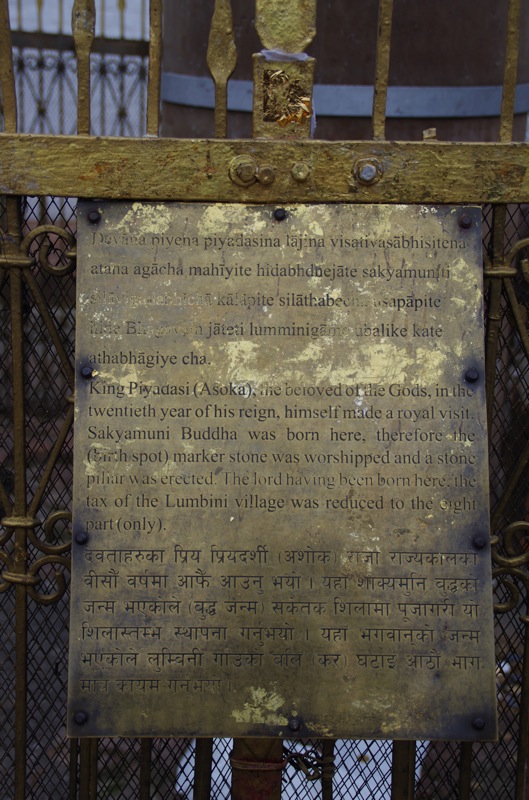 Devāna piyena piyadasina lājina visativasābhisitena
atana agācha mahīyite hidabhdhejāte sakyamunīti
kālāpite silāthabecha usapāpite
jāteti lumminigāme ubalike kate
athabhāgiye cha.
King Piyadasi (Asoka), the beloved of the Gods, in the
twentieth year of his reign, himself made a royal visit.
Sakyamuni Buddha was born here, therefore the
(birth spot) marker stone was worshipped and a stone
pillar was erected. The lord having been born here, the
tax of the Lumbini village was reduced to the eight
part (only).
देवताहरुका प्रिय प्रियदर्शी (अशोक) राजा राज्यकालका
बीसौं वर्षमा आफै आउनु भयो । यहाँ शाक्यमुनि बुद्धका
जन्म भएकोले (बुद्ध जन्म) संकेतक शिलामा पूजागरी यो
शिलास्तम्भ स्थापना गर्नुभयो । यहाँ भगवानको जन्म
भएकोले लुम्बिनी गाउँको बलि (कर) घटाइ आठौं भाग
कायम गर्नुभयो ।